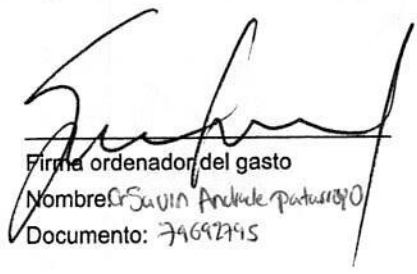 Firma ordenador del gasto
Nombre: Cr Savin Andrade Patarroyo
Documento: 79692795